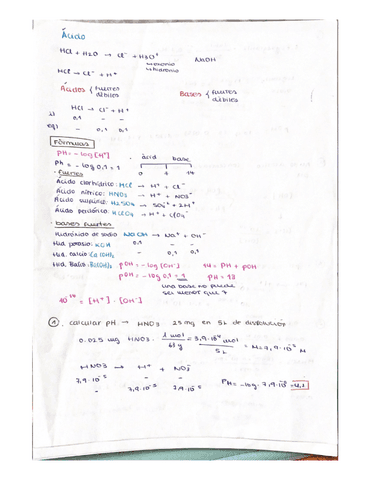 Ácido
HCl + H2O → Cl⁻ + H3O⁺ NaOH
→oxonio
→hidronio
HCl → Cl⁻ + H⁺
Ácidos { fuertes Bases { fuertes
débiles débiles
HCl → Cl⁻ + H⁺
i) 0,1 - -
eq) - 0,1 0,1
Fórmulas
pH = -log[H⁺] · ácid base
pH = -log 0,1 = 1 0 7 14
· fuertes
Ácido clorhídrico: HCl → H⁺ + Cl⁻
Ácido nítrico: HNO3 → H⁺ + NO3⁻
Ácido sulfúrico: H2SO4 → SO4⁼ + 2H⁺
Ácido perclórico: HClO4 → H⁺ + ClO4⁻
· bases fuertes
Hidróxido de sodio NaOH → Na⁺ + OH⁻
Hid. potasio: KOH 0,1 - -
Hid. calcio Ca(OH)2 - 0,1 0,1
Hid. Bario: Ba(OH)2 pOH = -log[OH⁻] 14 = pH + pOH
pOH = -log 0,1 = 1 pH = 13
una base no puede
ser menor que 7
10⁻¹⁴ = [H⁺] · [OH⁻]
① . calcular pH → HNO3 25 mg en 5L de disolución
0.025 mg HNO3 · 1 mol / 63 g = 3,9·10⁻⁴ mol / 5L = M = 7,9·10⁻⁵ M
HNO3 → H⁺ + NO3⁻
7,9·10⁻⁵ - - pH = -log 7,9·10⁻⁵ = 4,1
- 7,9·10⁻⁵ 7,9·10⁻⁵